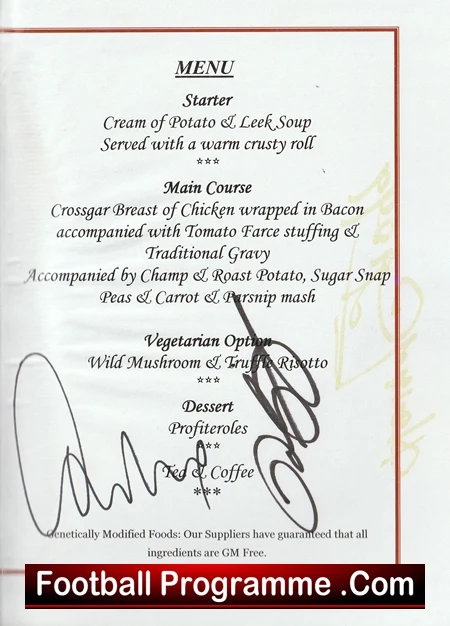 MENU
Starter
Cream of Potato & Leek Soup
Served with a warm crusty roll
***
Main Course
Crossgar Breast of Chicken wrapped in Bacon
accompanied with Tomato Farce stuffing &
Traditional Gravy
Accompanied by Champ & Roast Potato, Sugar Snap
Peas & Carrot & Parsnip mash
Vegetarian Option
Wild Mushroom & Truffle Risotto
***
Dessert
Profiteroles
***
Tea & Coffee
***
Genetically Modified Foods: Our Suppliers have guaranteed that all
ingredients are GM Free.
Football Programme .Com